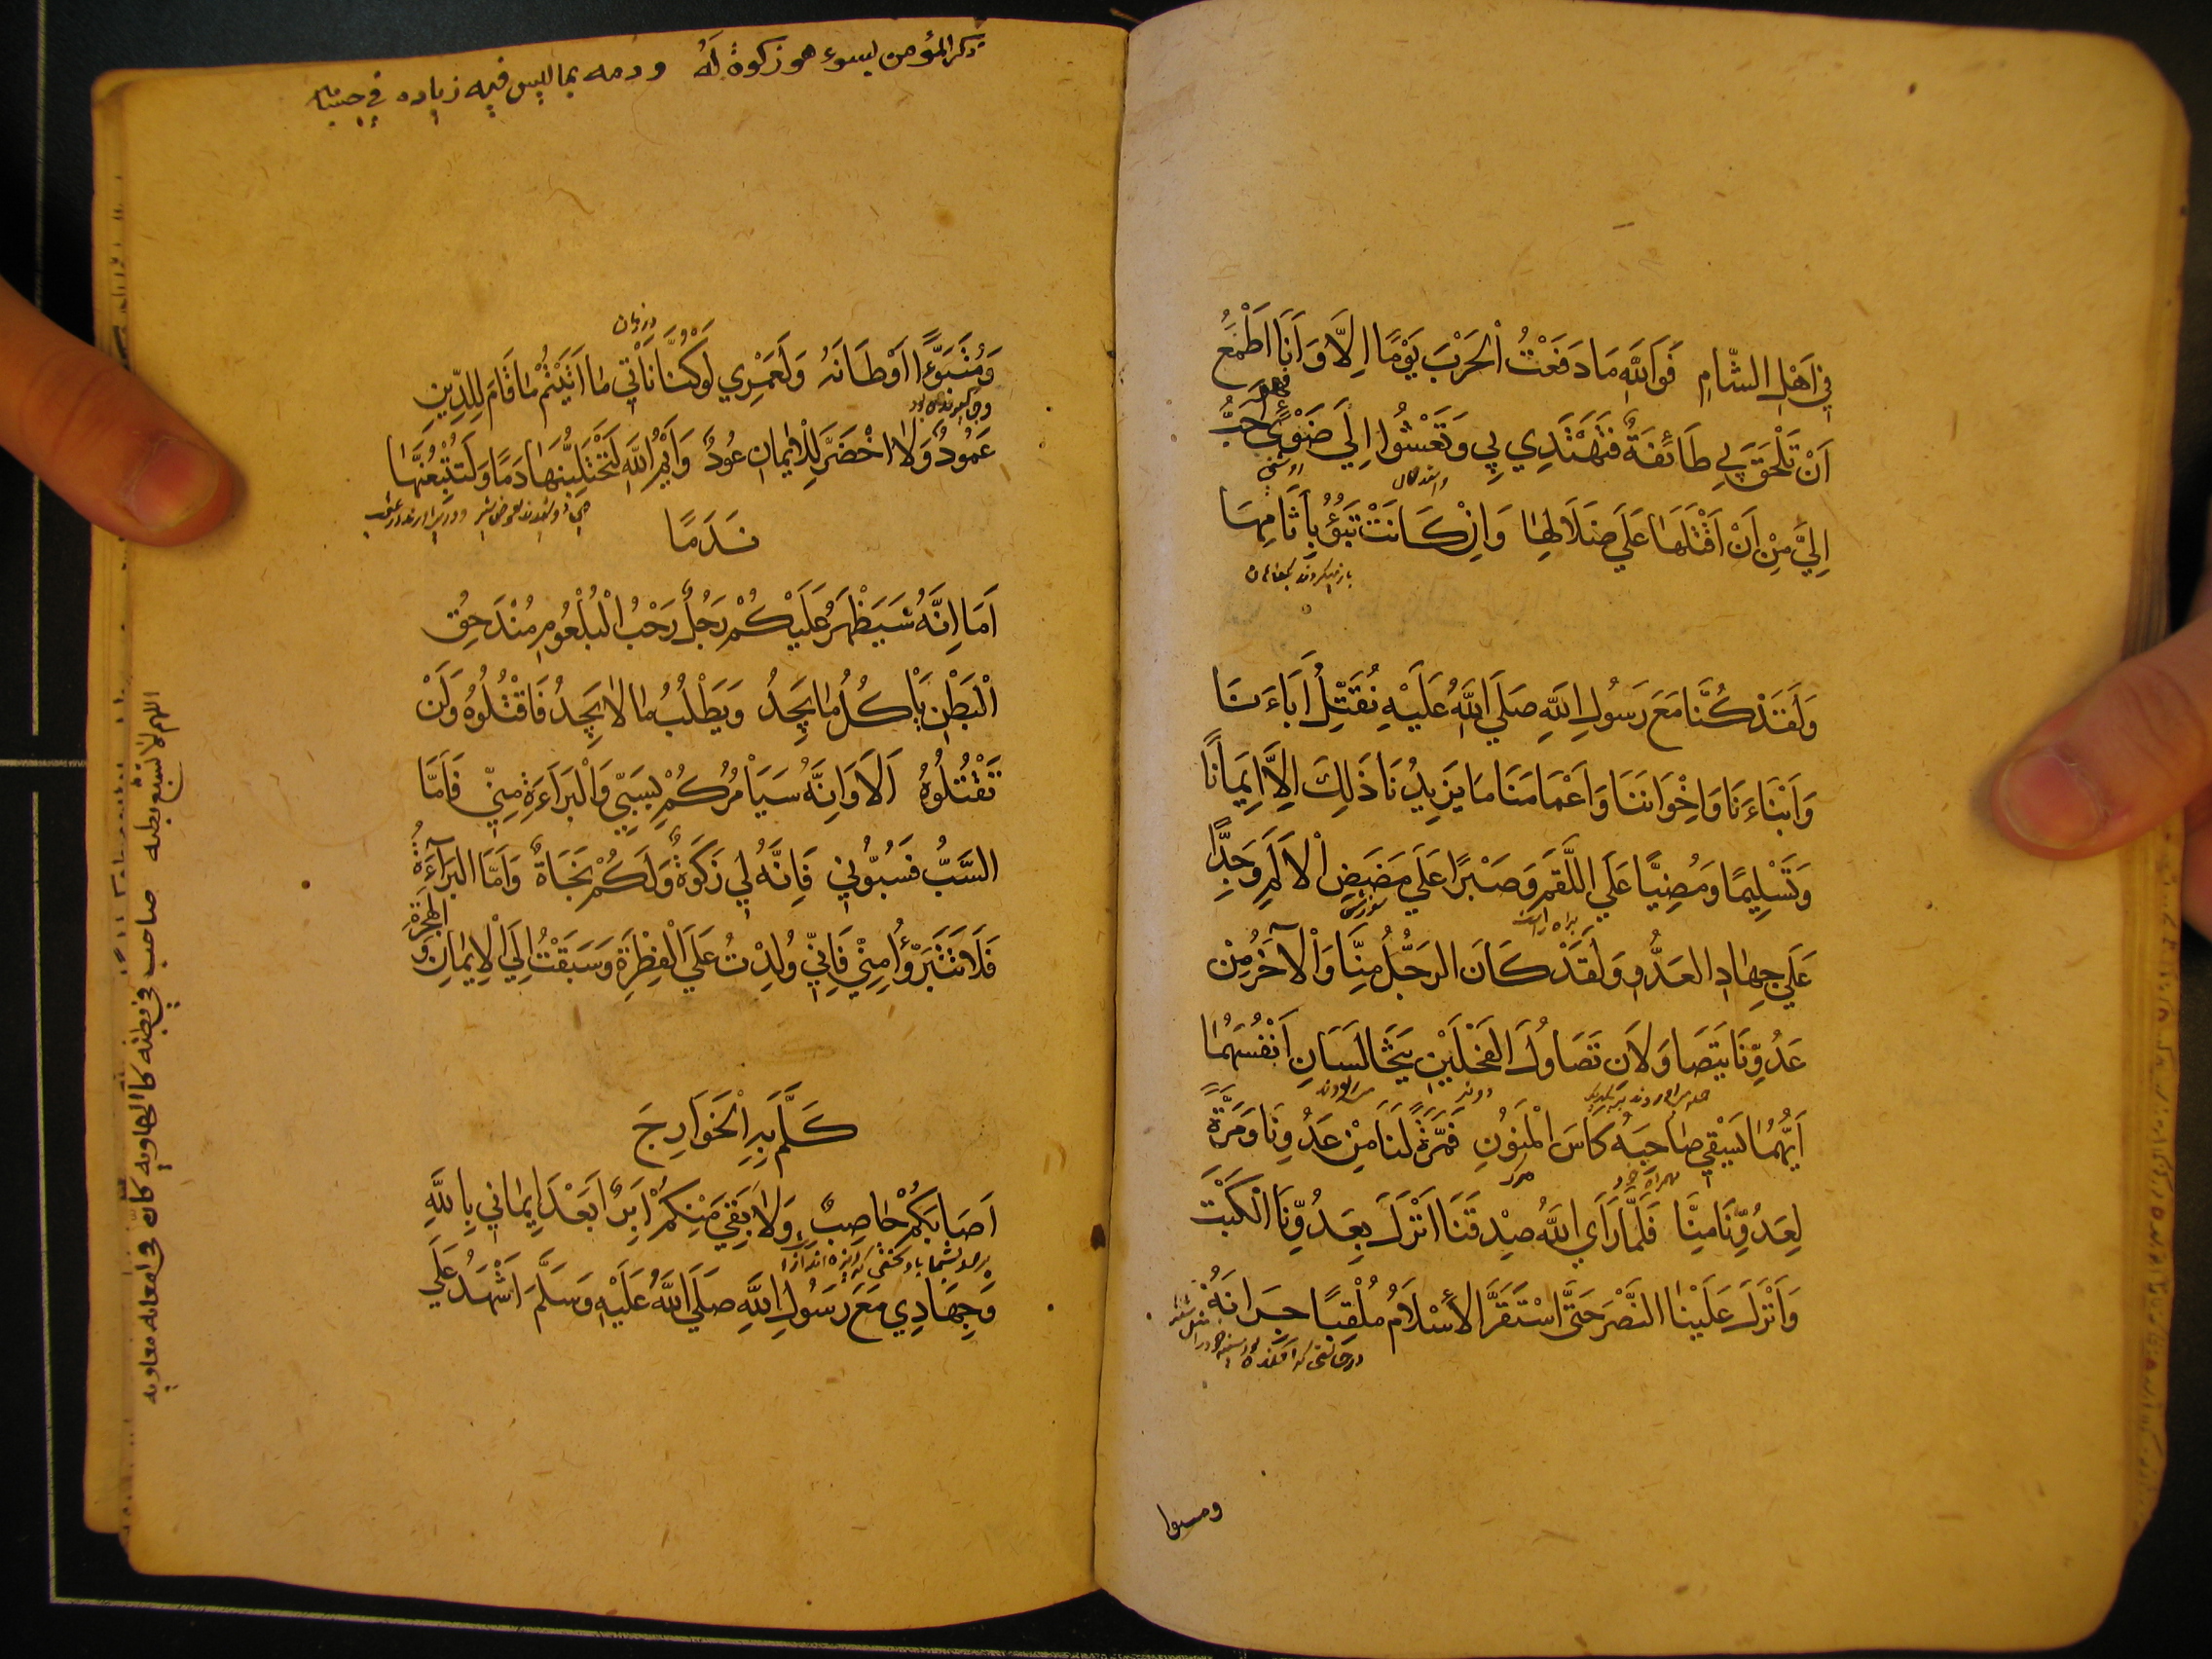 فِي اَهْلِ الشّامِ فَوَاللّهِ مَا دَفَعْتُ الْحَرْبَ يَوْمًا اِلَّا وَاَنَا اَطْمَعُ
اَنْ تَلْحَقَ بِي طَائِفَةٌ فَتَهْتَدِي بِي وَتَعْشُوا اِلَي ضَوْئِي فهو اَحَبُّ
اِلَيَّ مِنْ اَنْ اَقْتُلَهَا عَلَي ضَلَالِهَا وَاِنْ كَانَتْ تَبُؤُ بِآثَامِهَا
وَلَقَدْ كُنَّا مَعَ رَسُولِ اللّهِ صَلَي اللّهُ عَلَيْهِ نُقَتِّلُ اَبَاءَنَا
وَاَبْنَاءَنَا وَاِخْوَانَنَا وَاَعْمَامَنَا مَا يَزِيدُنَا ذَلِكَ اِلَّا اِيمَانًا
وَتَسْلِيمًا وَمُضِيًّا عَلَي اللَّقَمِ وَصَبْرًا عَلَي مَضَضِ الْاَلَمِ وَجِدًّا
عَلَي جِهَادِ العَدُّوِ وَلَقَدْ كَانَ الرَجُلُ مِنَّا وَالْآخَرُ مِنْ
عَدُوِّنَا يَتَصَاوَلَانِ تَصَاوُلَ الفَحْلَيْنِ يَتَخَالَسَانِ اَنْفُسَهُمَا
اَيُّهُمَا يَسْقِي صَاحِبَهُ كَاسَ الْمَنُونِ فَمَرَّةً لَنَا مِنْ عَدُوِنَا وَمَرَّةً
لِعَدُوِّنَا مِنَّا فَلَمَّا رَاَي اللّهُ صِدْقَنَا اَنْزَلَ بِعَدُوِّنَا الْكَبْتَ
وَاَنْزَلَ عَلَيْنَا النَّصْرَ حَتَّى اسْتَقَرَّ الْاِسْلَامُ مُلْقِيًا جِرَانَهُ
ومبوا
ذكر المؤمن بسوء هو زكوة لَهُ ودمه بما ليس فيه زياده في
وَمُتَبَوِّءًا اَوْطَانَهُ وَلَعَمْرِي لَوْ كُنَّا نَاْتِي مَا اَتَيْتُمْ مَا قَامَ لِلدِّينِ
عَمُودٌ وَلَا اخْضَرَّ لِلْاِيمَانِ عُودٌ وَاَيْمُ اللّهِ لَتَحْتَلِبُنَّهَا دَمًا وَلَتُتْبِعُنَّهَا
نَدَمًا
اَمَا اِنَّهُ سَيَظْهَرُ عَلَيْكُمْ رَجُلٌ رَحْبُ الْبُلْعُومِ مُنْدَحِقُ
الْبَطْنِ يَاْكُلُ مَا يَجِدُ وَيَطْلُبُ مَا لَا يَجِدُ فَاقْتُلُوهُ وَلَنْ
تَقْتُلُوهُ اَلَا وَاِنَّهُ سَيَاْمُرُكُمْ بِسَبِّي وَالْبَرَاءَةِ مِنِّي فَاَمَّا
السَّبُّ فَسُبُّونِي فَاِنَّهُ لِي زَكَوةٌ وَلَكُمْ نَجَاةٌ وَاَمَّا البَرَآءَةُ
فَلَا تَتَبَرَّؤُا مِنِّي فَاِنِّي وُلِدْتُ عَلَي الْفِطْرَةِ وَسَبَقْتُ اِلَي الْاِيمَانِ وَالهِجْرَةِ
كَلَّمَ بِهِ الْخَوَارِجَ
اَصَابَكُمْ حَاصِبٌ وَلَا بَقِيَ مِنْكُمْ آبِرٌ اَبَعْدَ اِيمَانِي بِاللّهِ
وَجِهَادِي مَعَ رَسُولِ اللّهِ صَلَي اللّهُ عَلَيْهِ وَسَلَّمَ اَشْهَدُ عَلَي
اللهم لا تشبع بطنه صاحب لي بطنه كالهاويه كان في امعائه معاويه